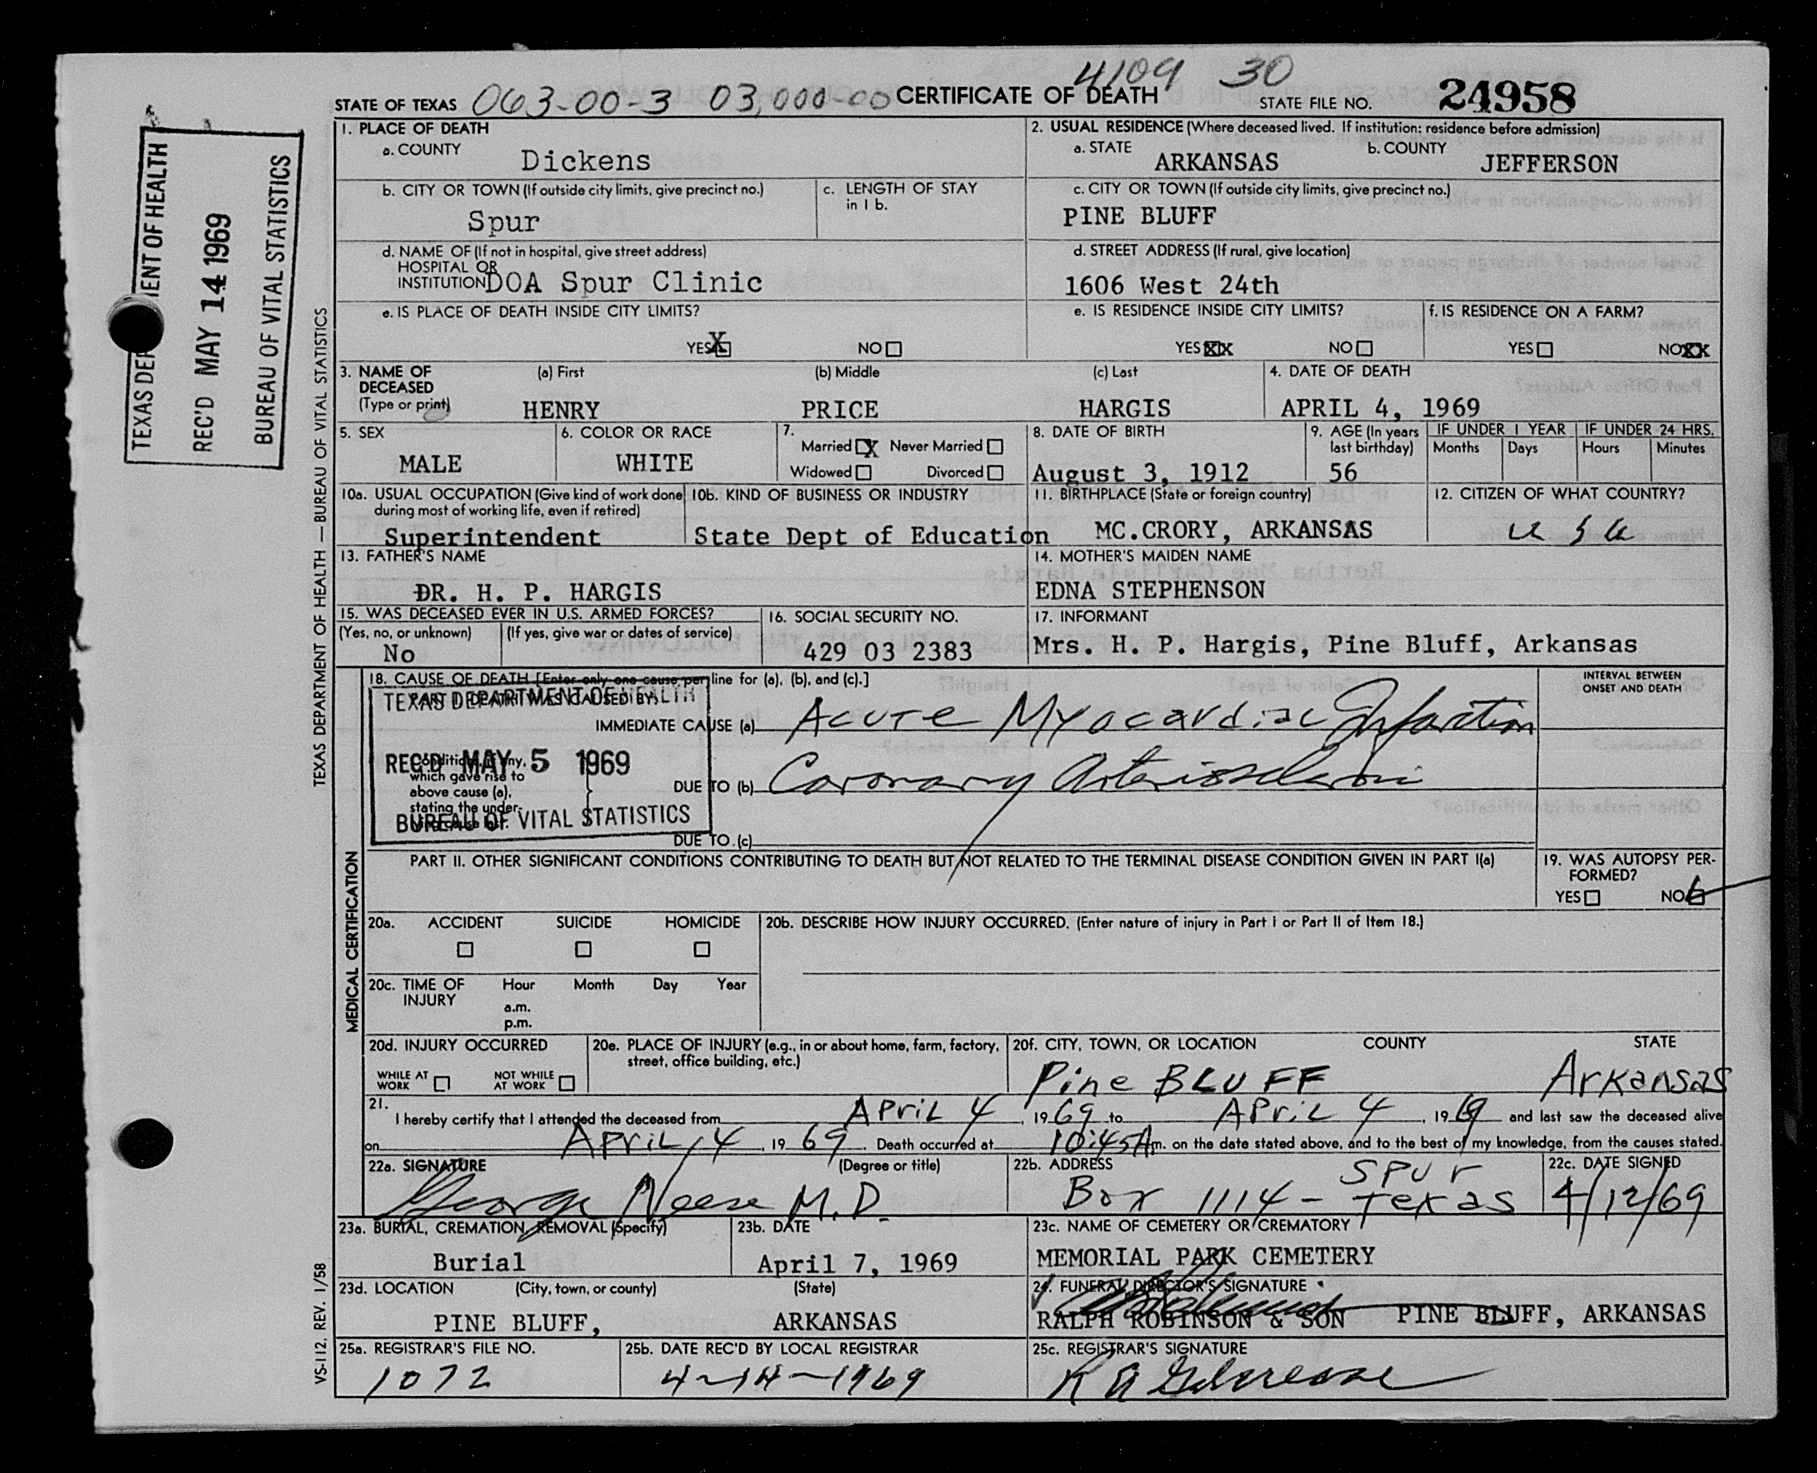 4109 30
STATE OF TEXAS 063-00-3 03,000-00 CERTIFICATE OF DEATH STATE FILE NO. 24958
TEXAS DEP ENT OF HEALTH
REC'D MAY 14 1969
BUREAU OF VITAL STATISTICS
TEXAS DEPARTMENT OF HEALTH — BUREAU OF VITAL STATISTICS
1. PLACE OF DEATH
a. COUNTY Dickens
2. USUAL RESIDENCE (Where deceased lived. If institution: residence before admission)
a. STATE ARKANSAS b. COUNTY JEFFERSON
b. CITY OR TOWN (If outside city limits, give precinct no.)
Spur
c. LENGTH OF STAY
in 1 b.
c. CITY OR TOWN (If outside city limits, give precinct no.)
PINE BLUFF
d. NAME OF (If not in hospital, give street address)
HOSPITAL OR
INSTITUTION DOA Spur Clinic
d. STREET ADDRESS (If rural, give location)
1606 West 24th
e. IS PLACE OF DEATH INSIDE CITY LIMITS?
YES X NO
e. IS RESIDENCE INSIDE CITY LIMITS?
YES XX NO
f. IS RESIDENCE ON A FARM?
YES NO XX
3. NAME OF
DECEASED
(Type or print)
(a) First (b) Middle (c) Last
HENRY PRICE HARGIS
4. DATE OF DEATH
APRIL 4, 1969
5. SEX
MALE
6. COLOR OR RACE
WHITE
7.
Married X Never Married
Widowed Divorced
8. DATE OF BIRTH
August 3, 1912
9. AGE (In years
last birthday)
56
IF UNDER 1 YEAR
Months Days
IF UNDER 24 HRS.
Hours Minutes
10a. USUAL OCCUPATION (Give kind of work done
during most of working life, even if retired)
Superintendent
10b. KIND OF BUSINESS OR INDUSTRY
State Dept of Education
11. BIRTHPLACE (State or foreign country)
MC.CRORY, ARKANSAS
12. CITIZEN OF WHAT COUNTRY?
U S A
13. FATHER'S NAME
DR. H. P. HARGIS
14. MOTHER'S MAIDEN NAME
EDNA STEPHENSON
15. WAS DECEASED EVER IN U.S. ARMED FORCES?
(Yes, no, or unknown) (If yes, give war or dates of service)
No
16. SOCIAL SECURITY NO.
429 03 2383
17. INFORMANT
Mrs. H. P. Hargis, Pine Bluff, Arkansas
MEDICAL CERTIFICATION
18. CAUSE OF DEATH [Enter only one cause per line for (a), (b), and (c).]
PART I. DEATH WAS CAUSED BY:
TEXAS DEPARTMENT OF HEALTH
REC'D MAY 5 1969
BUREAU OF VITAL STATISTICS
INTERVAL BETWEEN
ONSET AND DEATH
IMMEDIATE CAUSE (a) Acute Myocardial Infarction
Conditions, if any,
which gave rise to
above cause (a),
stating the under-
DUE TO (b) Coronary Arteriosclerosis
DUE TO (c)
PART II. OTHER SIGNIFICANT CONDITIONS CONTRIBUTING TO DEATH BUT NOT RELATED TO THE TERMINAL DISEASE CONDITION GIVEN IN PART I(a)
19. WAS AUTOPSY PER-
FORMED?
YES NO
20a. ACCIDENT SUICIDE HOMICIDE
20b. DESCRIBE HOW INJURY OCCURRED. (Enter nature of injury in Part I or Part II of Item 18.)
20c. TIME OF
INJURY
Hour Month Day Year
a.m.
p.m.
20d. INJURY OCCURRED
WHILE AT
WORK
NOT WHILE
AT WORK
20e. PLACE OF INJURY (e.g., in or about home, farm, factory,
street, office building, etc.)
20f. CITY, TOWN, OR LOCATION COUNTY STATE
Pine BLUFF Arkansas
21.
I hereby certify that I attended the deceased from April 4, 1969 to April 4, 1969 and last saw the deceased alive
on April 4, 1969. Death occurred at 10:45 A m. on the date stated above, and to the best of my knowledge, from the causes stated.
22a. SIGNATURE (Degree or title)
George Neese M.D.
22b. ADDRESS
Box 1114 - Spur Texas
22c. DATE SIGNED
4/12/69
23a. BURIAL, CREMATION, REMOVAL (Specify)
Burial
23b. DATE
April 7, 1969
23c. NAME OF CEMETERY OR CREMATORY
MEMORIAL PARK CEMETERY
23d. LOCATION (City, town, or county) (State)
PINE BLUFF, ARKANSAS
24. FUNERAL DIRECTOR'S SIGNATURE
RALPH ROBINSON & SON PINE BLUFF, ARKANSAS
25a. REGISTRAR'S FILE NO.
1072
25b. DATE REC'D BY LOCAL REGISTRAR
4-14-1969
25c. REGISTRAR'S SIGNATURE
VS-112. REV. 1/58